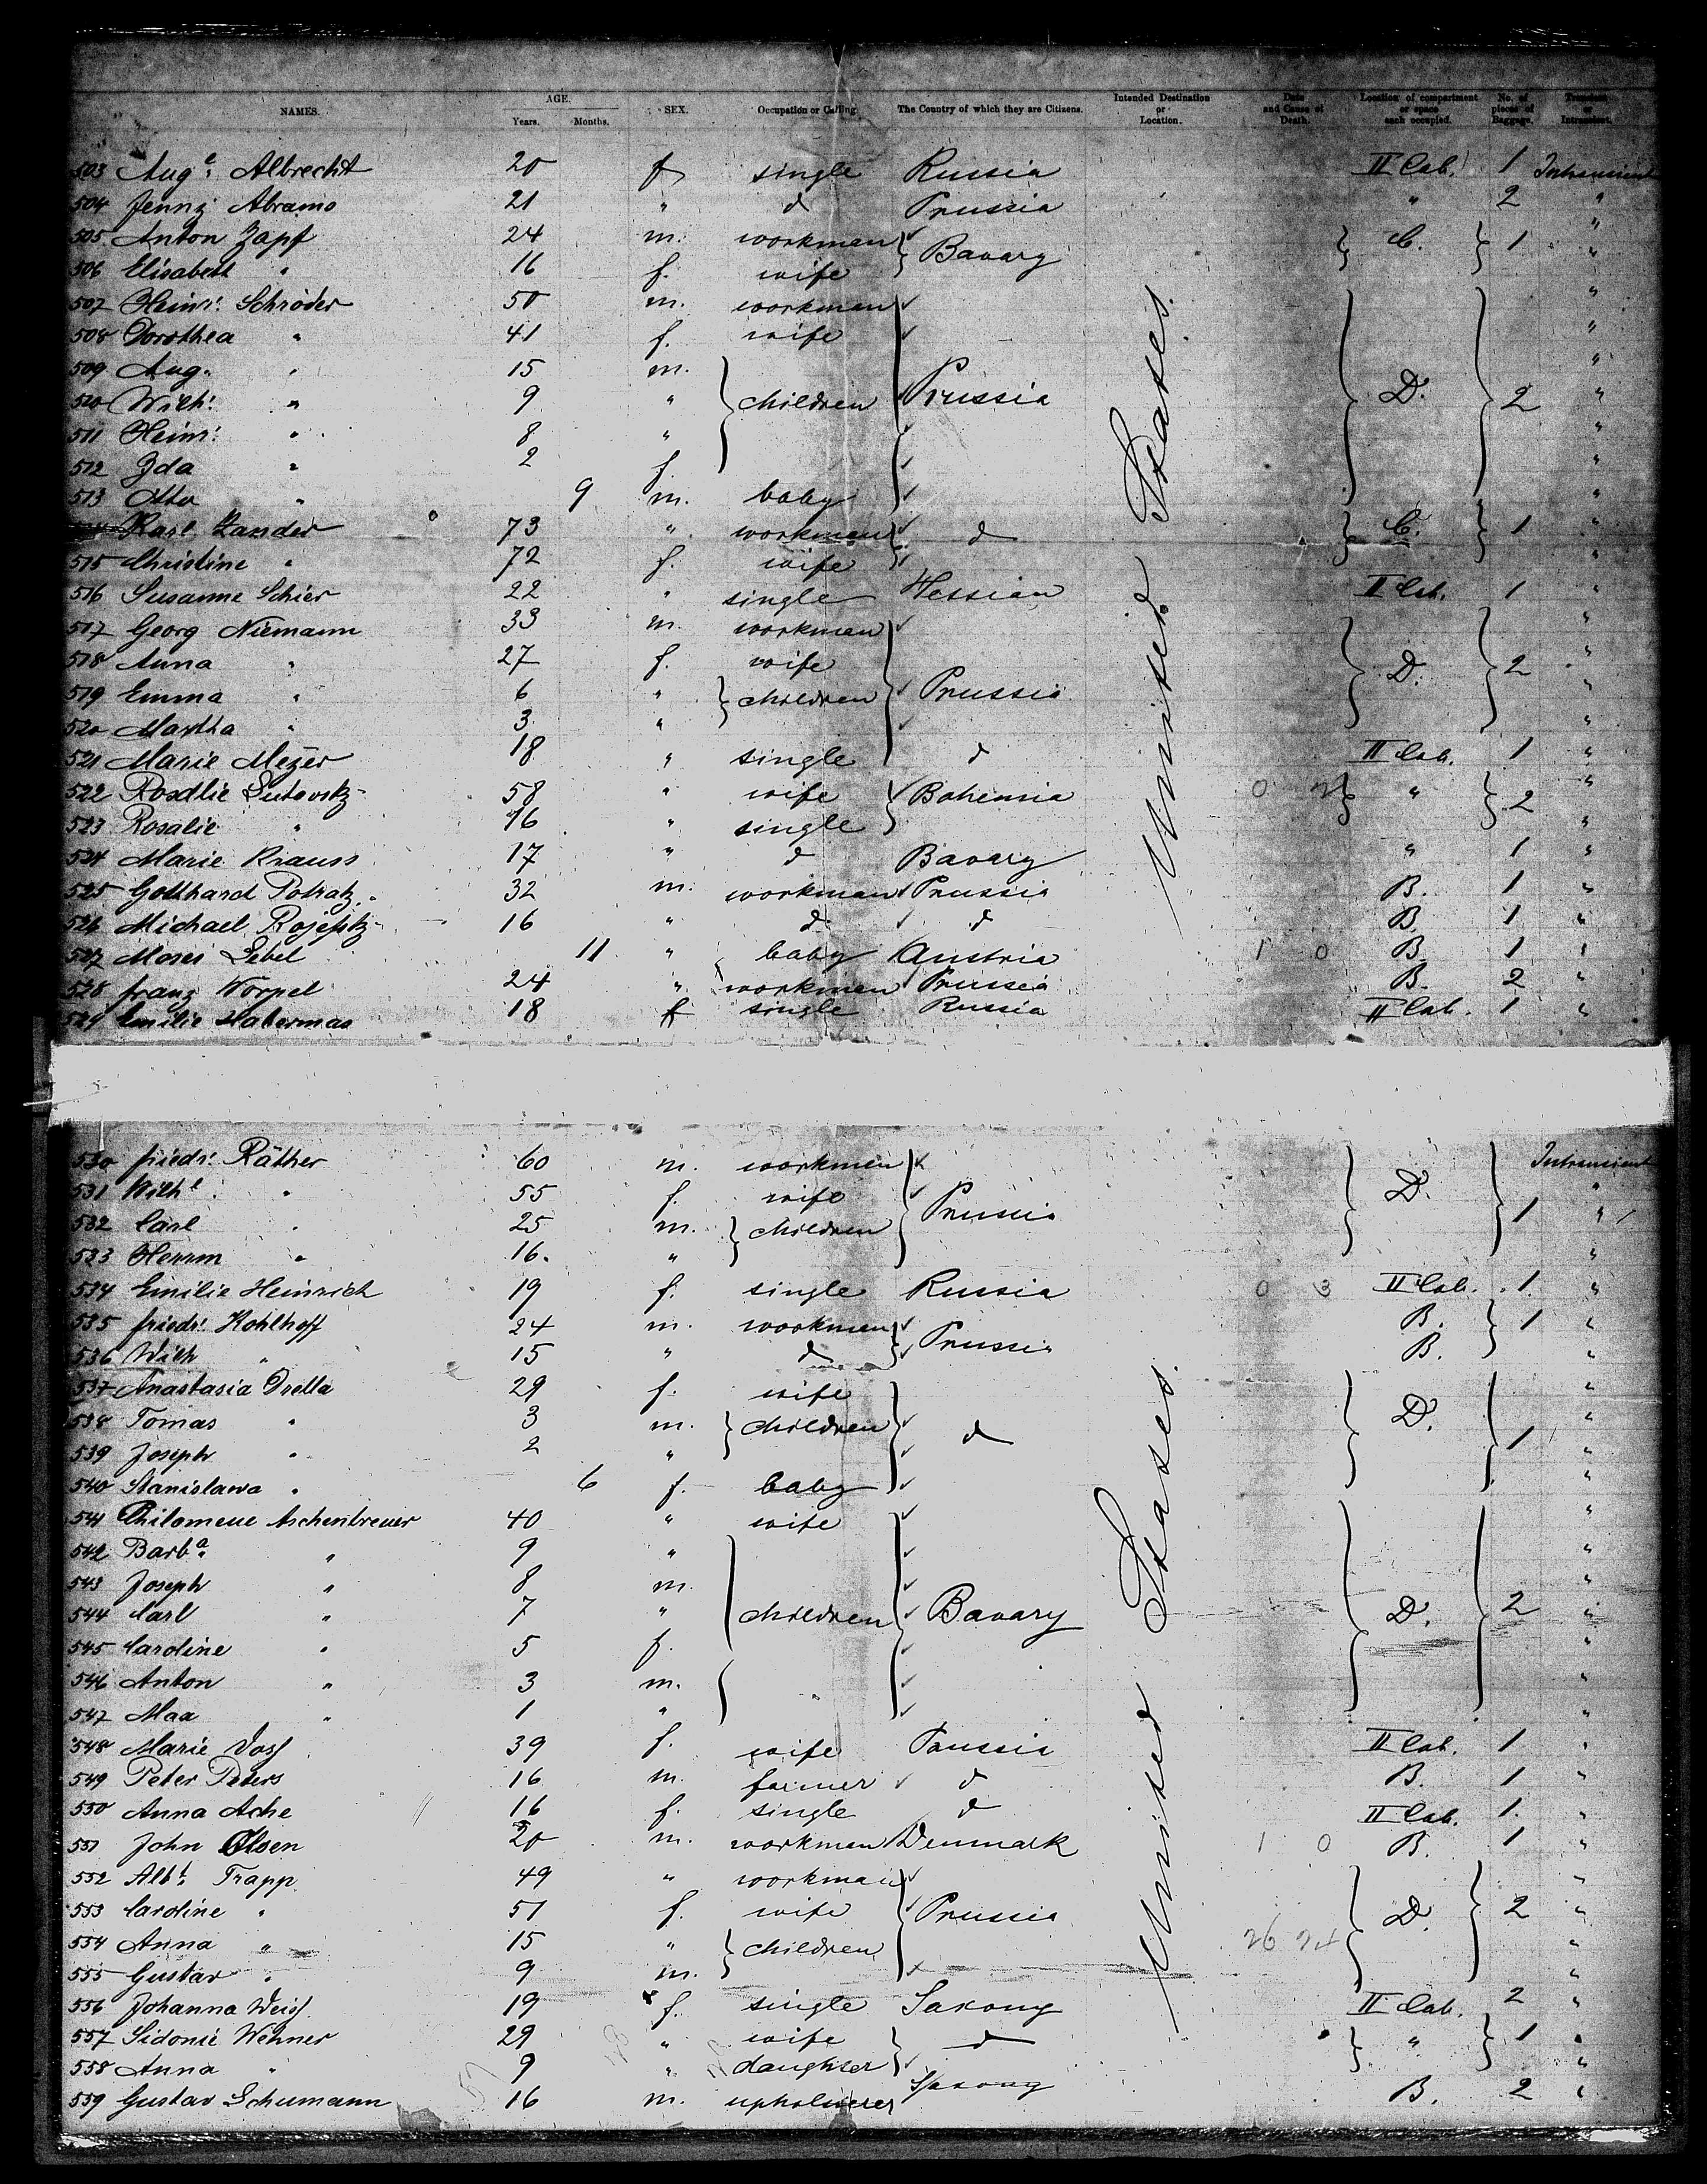 NAMES. AGE. Years. Months. SEX. Occupation or Calling. The Country of which they are Citizens. Intended Destination or Location. Date and Cause of Death. Location of compartment or space each occupied. No. of pieces of Baggage. Transient or Intransient.
503 Aug.e Albrecht 20 f single Russia II Cab. 1 Intransient
504 Jenny Abramo 21 " d Prussia " 2 "
505 Anton Zapf 24 m. workman Bavary C. 1 "
506 Elisabeth " 16 f. wife "
507 Heinr. Schröder 50 m. workman "
508 Dorothea " 41 f. wife "
509 Aug. " 15 m. "
510 Wilh. " 9 " children Prussia D. 2 "
511 Heinr. " 8 " "
512 Ida " 2 f. "
513 Otto " 9 m. baby "
Karl Zander 73 " workman d C. 1 "
515 Christine " 72 f. wife "
516 Susanne Schier 22 " single Hessian II Cab. 1 "
517 Georg Niemann 33 m. workmen "
518 Anna " 27 f. wife D. 2 "
519 Emma " 6 " children Prussia "
520 Martha " 3 " "
521 Marie Mezer 18 " single d II Cab. 1 "
522 Rosalie 58 " wife Bohemia 0 " 2 "
523 Rosalie " 16 " single "
524 Marie Krauss 17 " d Bavary " 1 "
525 Gotthard Potratz 32 m. workman Prussia B. 1 "
526 Michael 16 " d d B. 1 "
527 Moses Lebel 11 " baby Austria 1 0 B. 1 "
528 Franz Worpel 24 " workmen Prussia B. 2 "
529 Emilie Habermas 18 f single Russia II Cab. 1 "
United States.
530 Friedr. Räther 60 m. workmen D. Intransient
531 Wilh.e " 55 f. wife Prussia "
532 Carl " 25 m. children 1 "
533 Herrm " 16. " "
534 Emilie Heinrich 19 f. single Russia 0 3 II Cab. 1. "
535 Friedr. Kohlhoff 24 m. workmen Prussia B. 1 "
536 Wilh " 15 " d B. "
537 Anastasia Drella 29 f. wife D. "
538 Tomas " 3 m. children d "
539 Joseph " 2 " 1 "
540 Stanislawa " 6 f. baby "
541 Philomene Aschenbrener 40 " wife "
542 Barb.a " 9 " "
543 Joseph " 8 m. "
544 Carl " 7 " children Bavary D. 2 "
545 Caroline " 5 f. "
546 Anton " 3 m. " "
547 Max " 1 " "
548 Marie Voss 39 f. wife Prussia II Cab. 1 "
549 Peter Peters 16 m. farmer d B. 1 "
550 Anna Ache 16 f. single d II Cab. 1. "
551 John Olsen 20 m. workman Denmark 1 0 B. 1 "
552 Alb.t Trapp 49 " workman "
553 Caroline " 51 f. wife Prussia D. 2 "
554 Anna " 15 " children 26 24 "
555 Gustav " 9 m. "
556 Johanna Weiss 19 f. single Saxony II Cab. 2 "
557 Sidonie Wehner 29 " wife d " 1 "
558 Anna " 9 " daughter "
559 Gustav Schumann 16 m. upholsterer Saxony B. 2 "
United States.